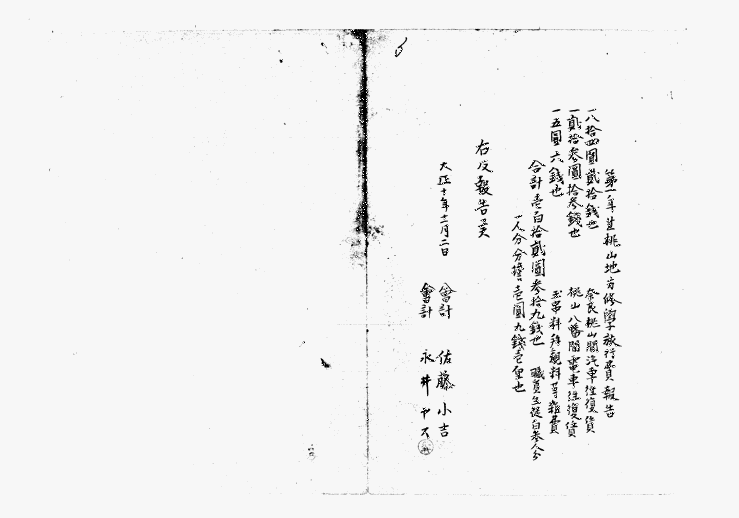 第一年生桃山地方修学旅行費報告
一八拾四圓貳拾錢也 奈良桃山間汽車往復賃
一貳拾参圓拾参錢也 桃山八幡間電車往復賃
一五圓六錢也 玉串料拜観料等雜費
合計壱百拾貳圓参拾九錢也 職員生徒百参人分
一人分分擔壱圓九錢壱厘也
右及報告候
大正十年十一月二日
會計 佐藤小吉
會計 永井